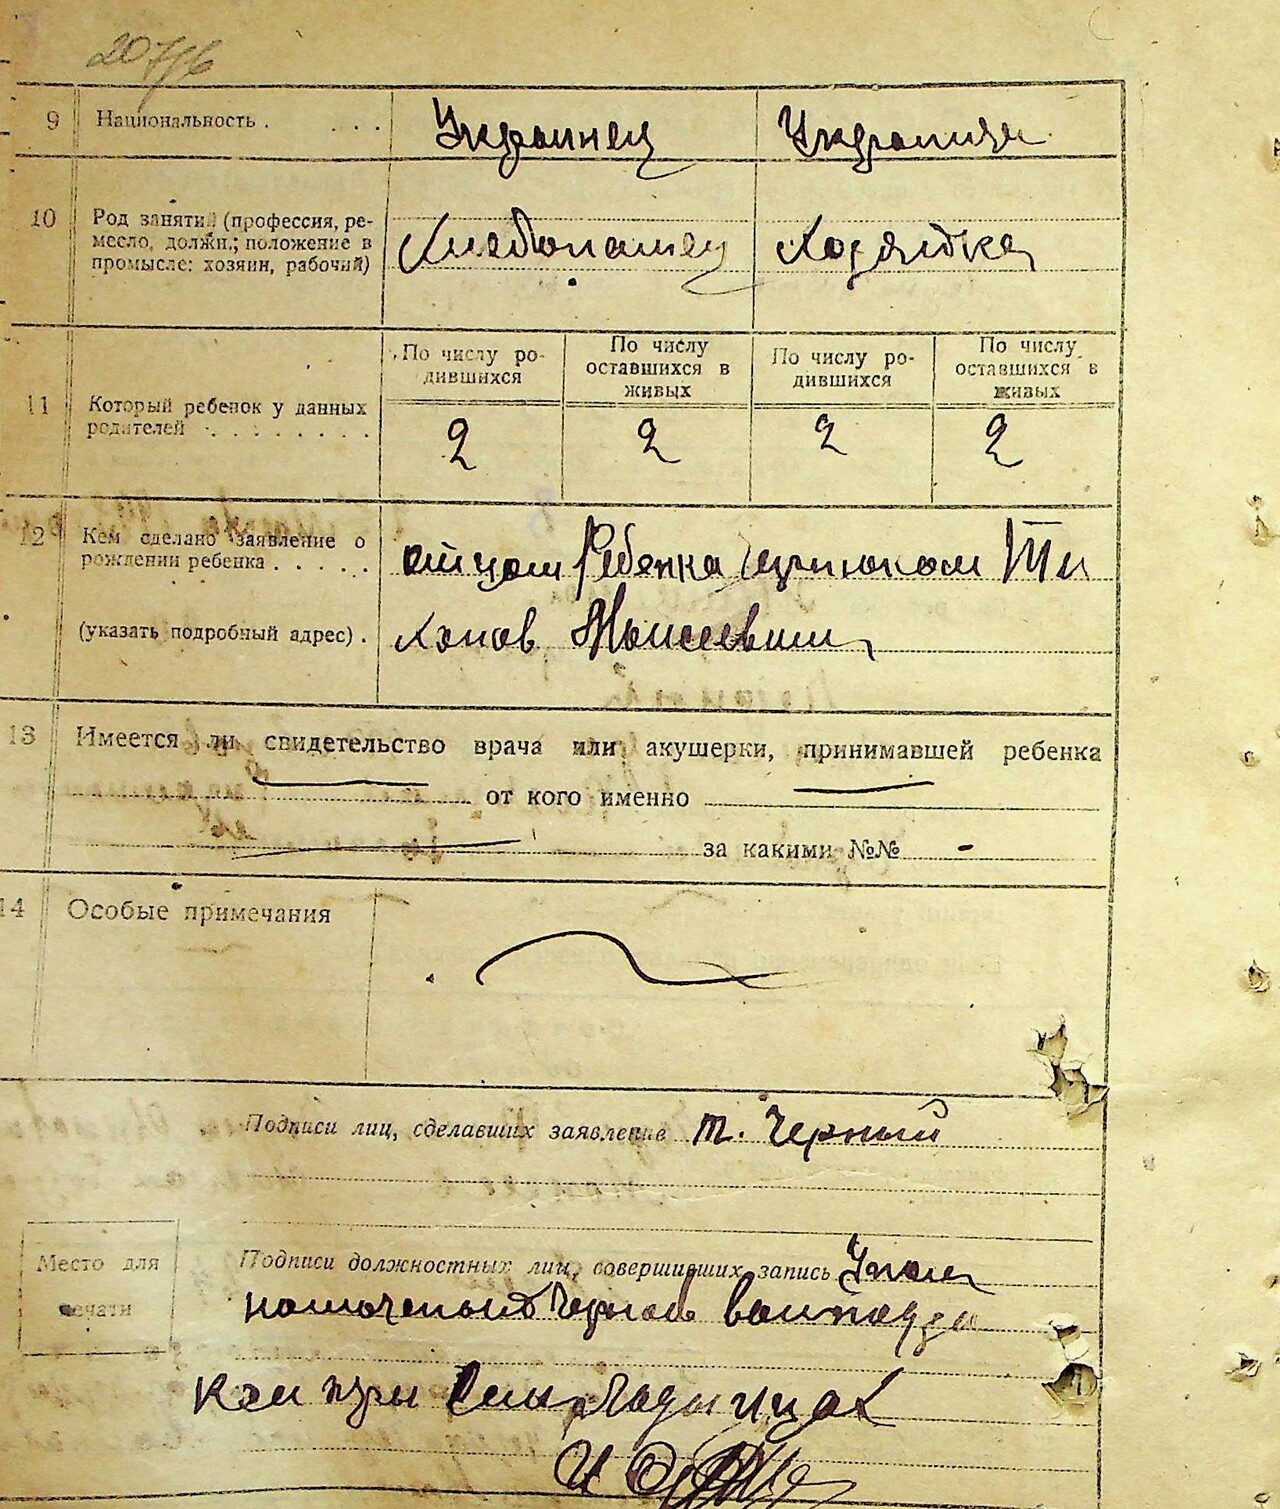 9 Национальность . . . . Украинец Украинца
10 Род занятий (профессия, ре-
месло, должн.; положение в
промысле: хозяин, рабочий)
Хлебопашец Хозяйка
По числу ро-
дившихся
По числу
оставшихся в
живых
По числу ро-
дившихся
По числу
оставшихся в
живых
11 Который ребенок у данных
родителей . . . . . . . .
2 2 2 2
12 Кем сделано заявление о
рождении ребенка . . . . .
отцом Ребенка Чернюком Ти
(указать подробный адрес) .
хонов Моисеевич
13 Имеется ли свидетельство врача или акушерки, принимавшей ребенка
от кого именно
за какими №№ -
14 Особые примечания
Подписи лиц, сделавших заявление т. Черный
Место для
печати
Подписи должностных лиц, совершивших запись Упол
номоченый
ком при